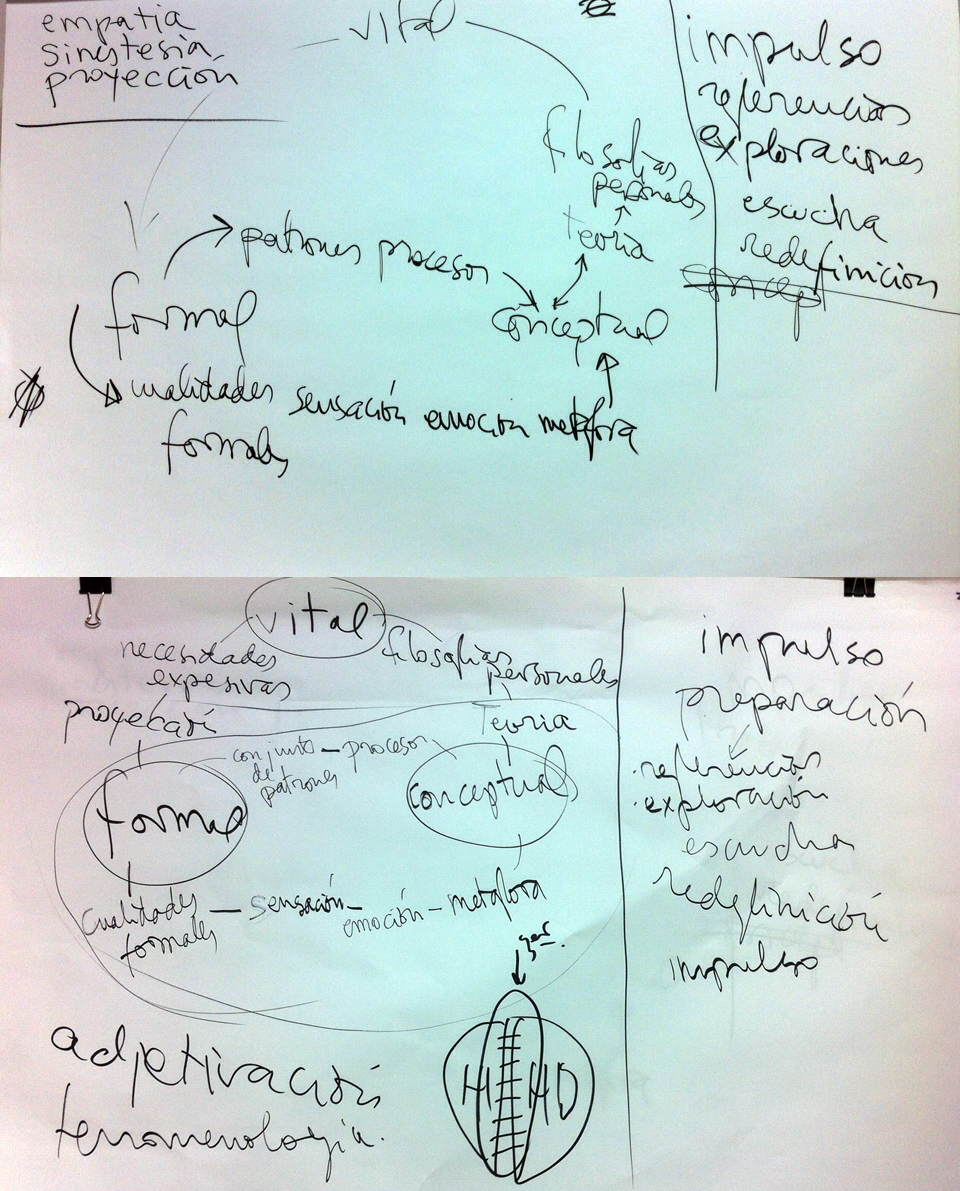 empatia
sinestesia
proyección
vital
filosofias
personales
teoria
patrones procesos
formal
conceptual
cualidades sensación emoción metafora
formales
impulso
referencias
exploraciones
escucha
redefinicion
concep
vital
necesidades
expesivas
filosofias
personales
proyección
Teoria
conjunto — procesos
de
patrones
formal
conceptual
cualidades — sensación —
formales
emoción — metafora
HI HD
adjetivación
fenomenologia.
impulso
preparación
· referencias
· exploración
escucha
redefinición
impulso